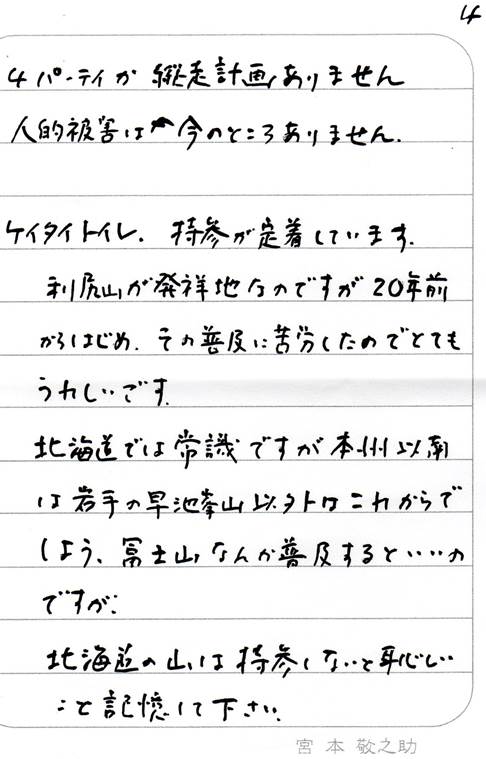 4
4パーティが 縦走計画ありません
人的被害は 今のところありません.
ケイタイトイレ. 持参が定着しています.
利尻山が発祥地なのですが20年前
からはじめ. その普及に苦労したのでとても
うれしいです.
北海道では常識ですが本州以南
は岩手の早池峯山以外はこれからで
しょう、冨士山なんか普及するといいの
ですが.
北海道の山は持参しないと恥しい
こと記憶して下さい.
宮本敬之助